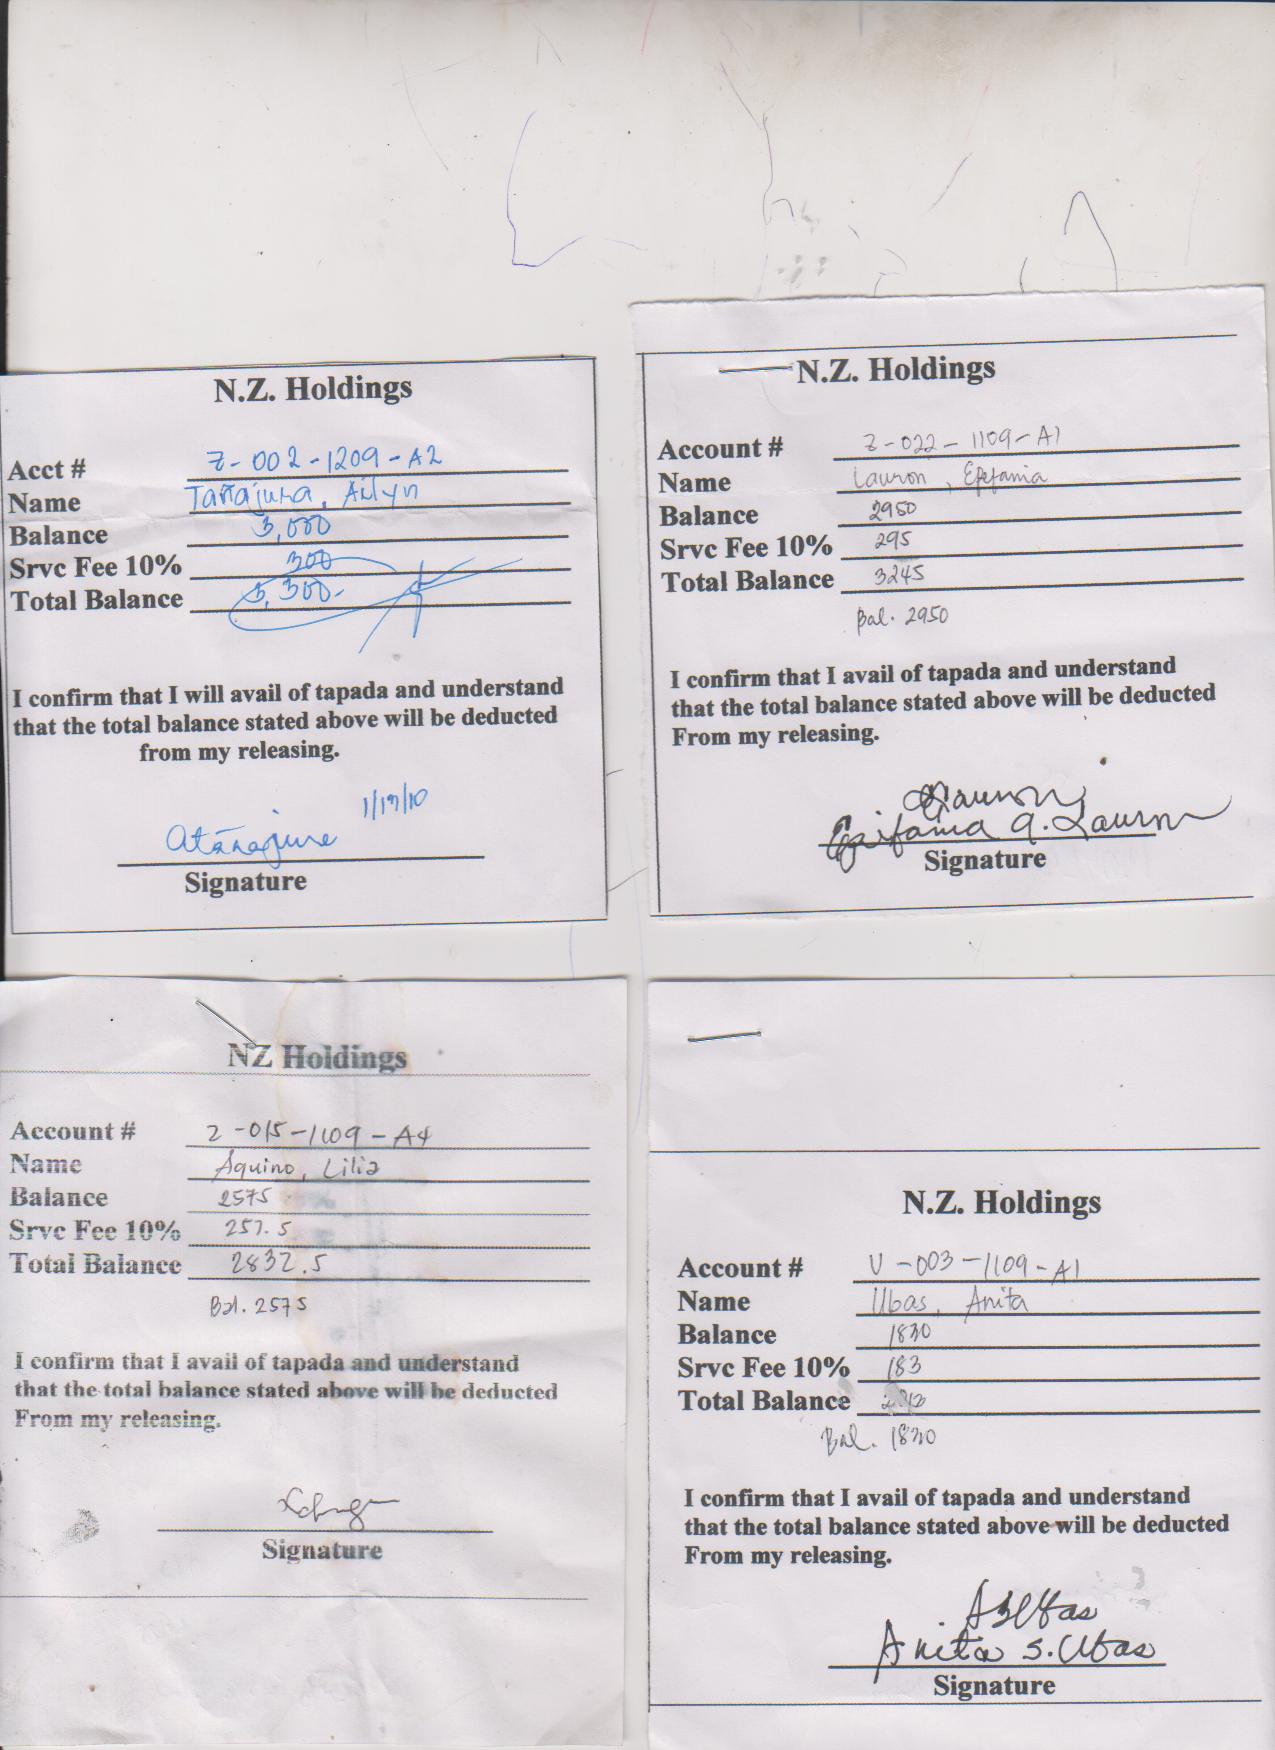 N.Z. Holdings
Acct # Z-002-1209-A2
Name Tañajura, Ailyn
Balance 3,000
Srvc Fee 10% 300
Total Balance 3,300-
I confirm that I will avail of tapada and understand
that the total balance stated above will be deducted
from my releasing.
Signature
N.Z. Holdings
Account # Z-022-1109-A1
Name Lauron, Epefania
Balance 2950
Srvc Fee 10% 295
Total Balance 3245
Bal. 2950
I confirm that I avail of tapada and understand
that the total balance stated above will be deducted
From my releasing.
Lauron
Epifania A. Lauron
Signature
NZ Holdings
Account # Z-015-1109-A4
Name Aquino, Lilia
Balance 2575
Srvc Fee 10% 257.5
Total Balance 2832.5
Bal. 2575
I confirm that I avail of tapada and understand
that the total balance stated above will be deducted
From my releasing.
Signature
N.Z. Holdings
Account # U-003-1109-A1
Name Ubas, Anita
Balance 1830
Srvc Fee 10% 183
Total Balance
Bal. 1830
I confirm that I avail of tapada and understand
that the total balance stated above will be deducted
From my releasing.
ASUbas
Anita S. Ubas
Signature